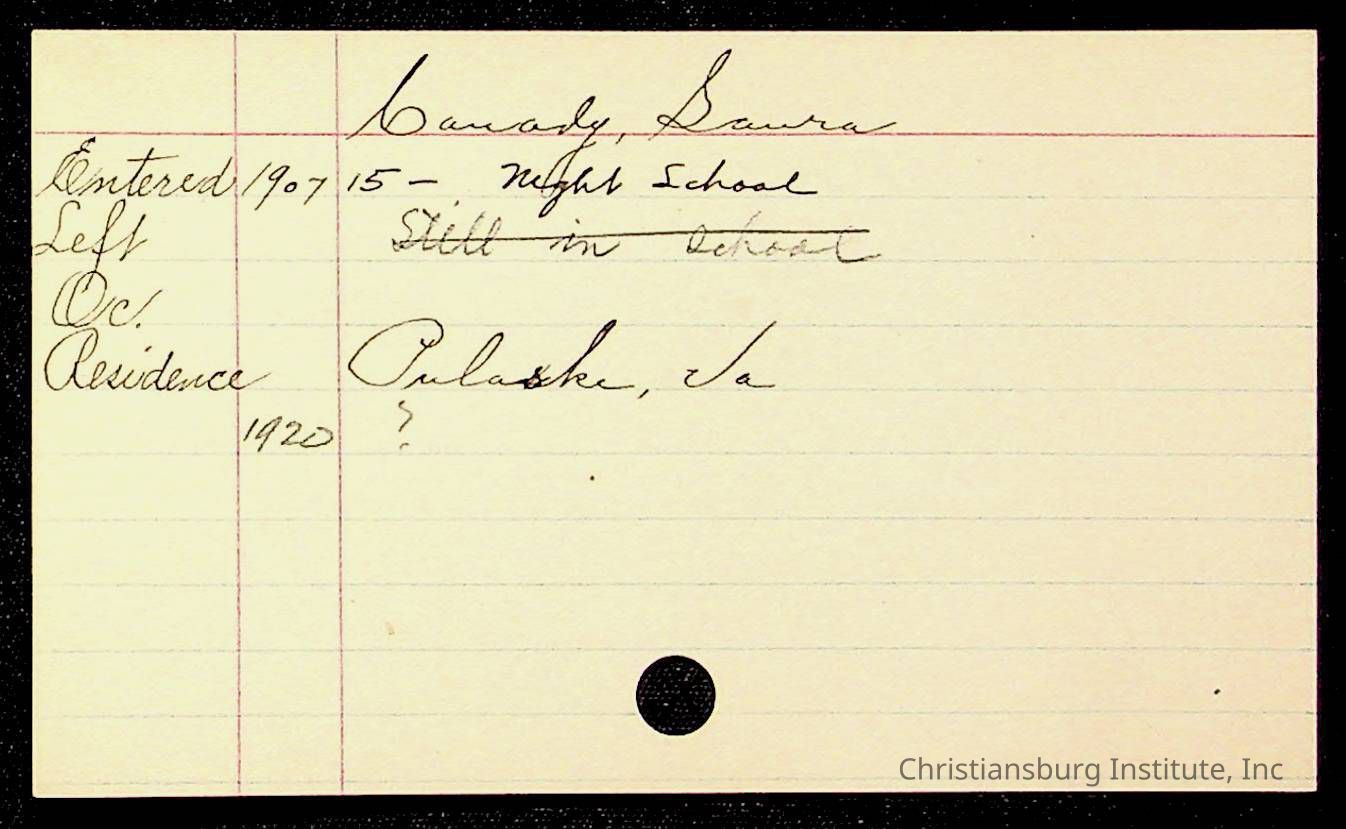 Canady, Laura
Entered 1907 15 - Night School
Left Still in School
Oc.
Residence Pulaski, Va
1920 ?
Christiansburg Institute, Inc